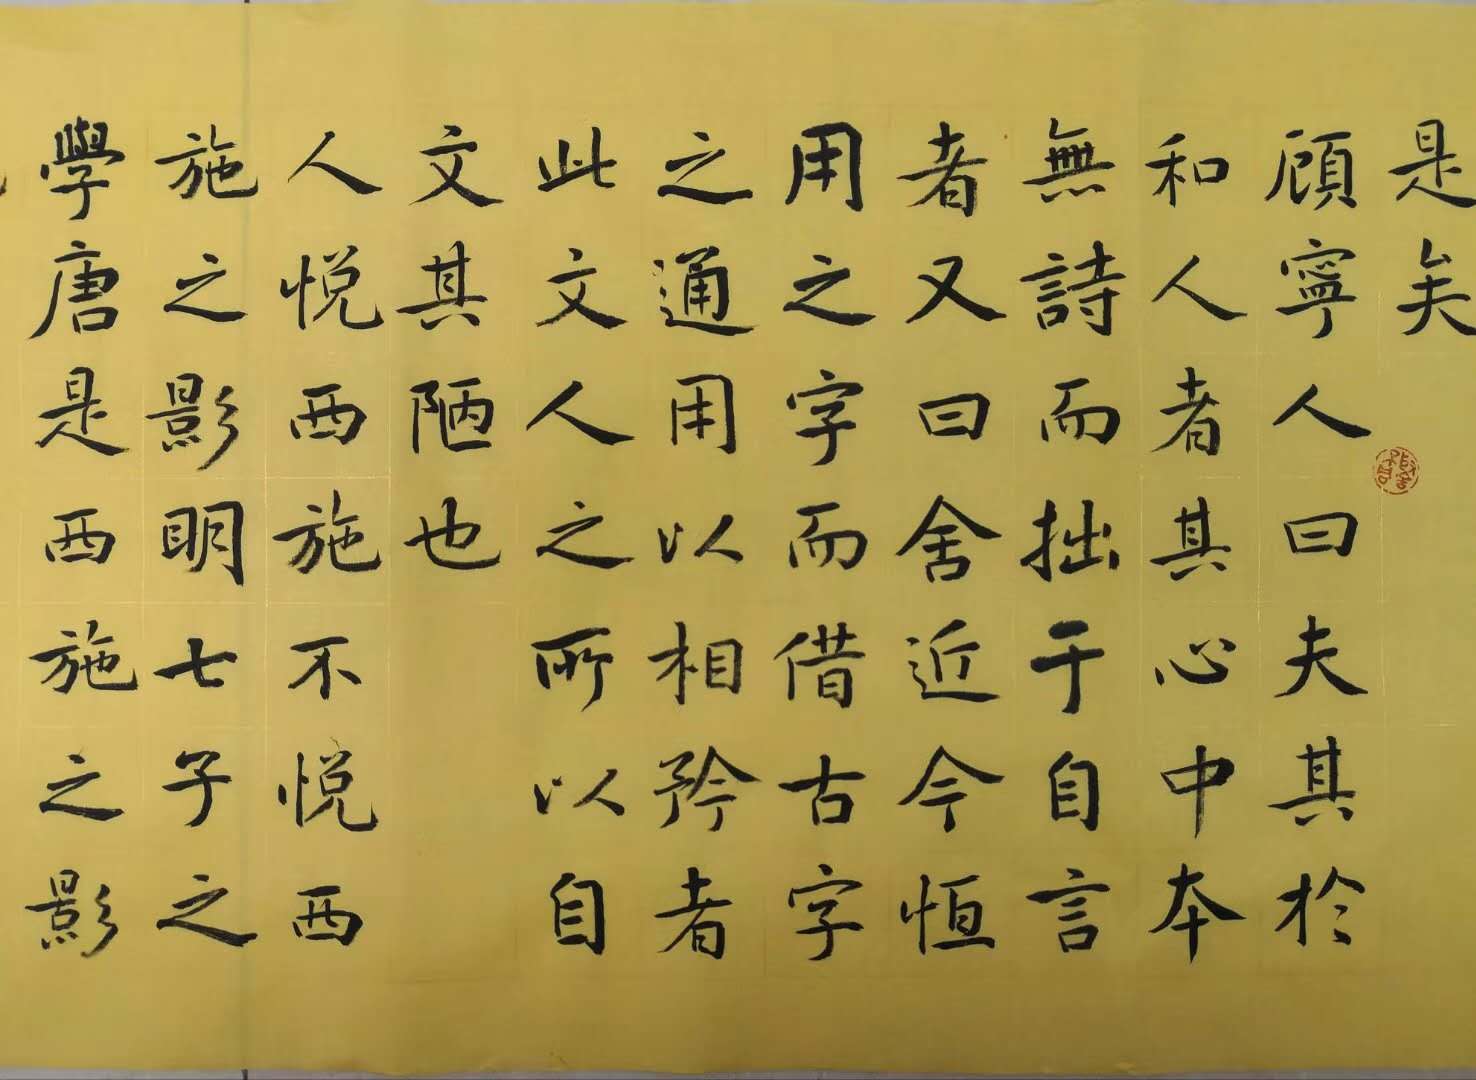 是矣
顧寧人曰夫其於
和人者其心中本
無詩而拙于自言
者又曰舍近今恒
用之字而借古字
之通用以相矜者
此文人之所以自
文其陋也
人悦西施不悦西
施之影明七子之
學唐是西施之影